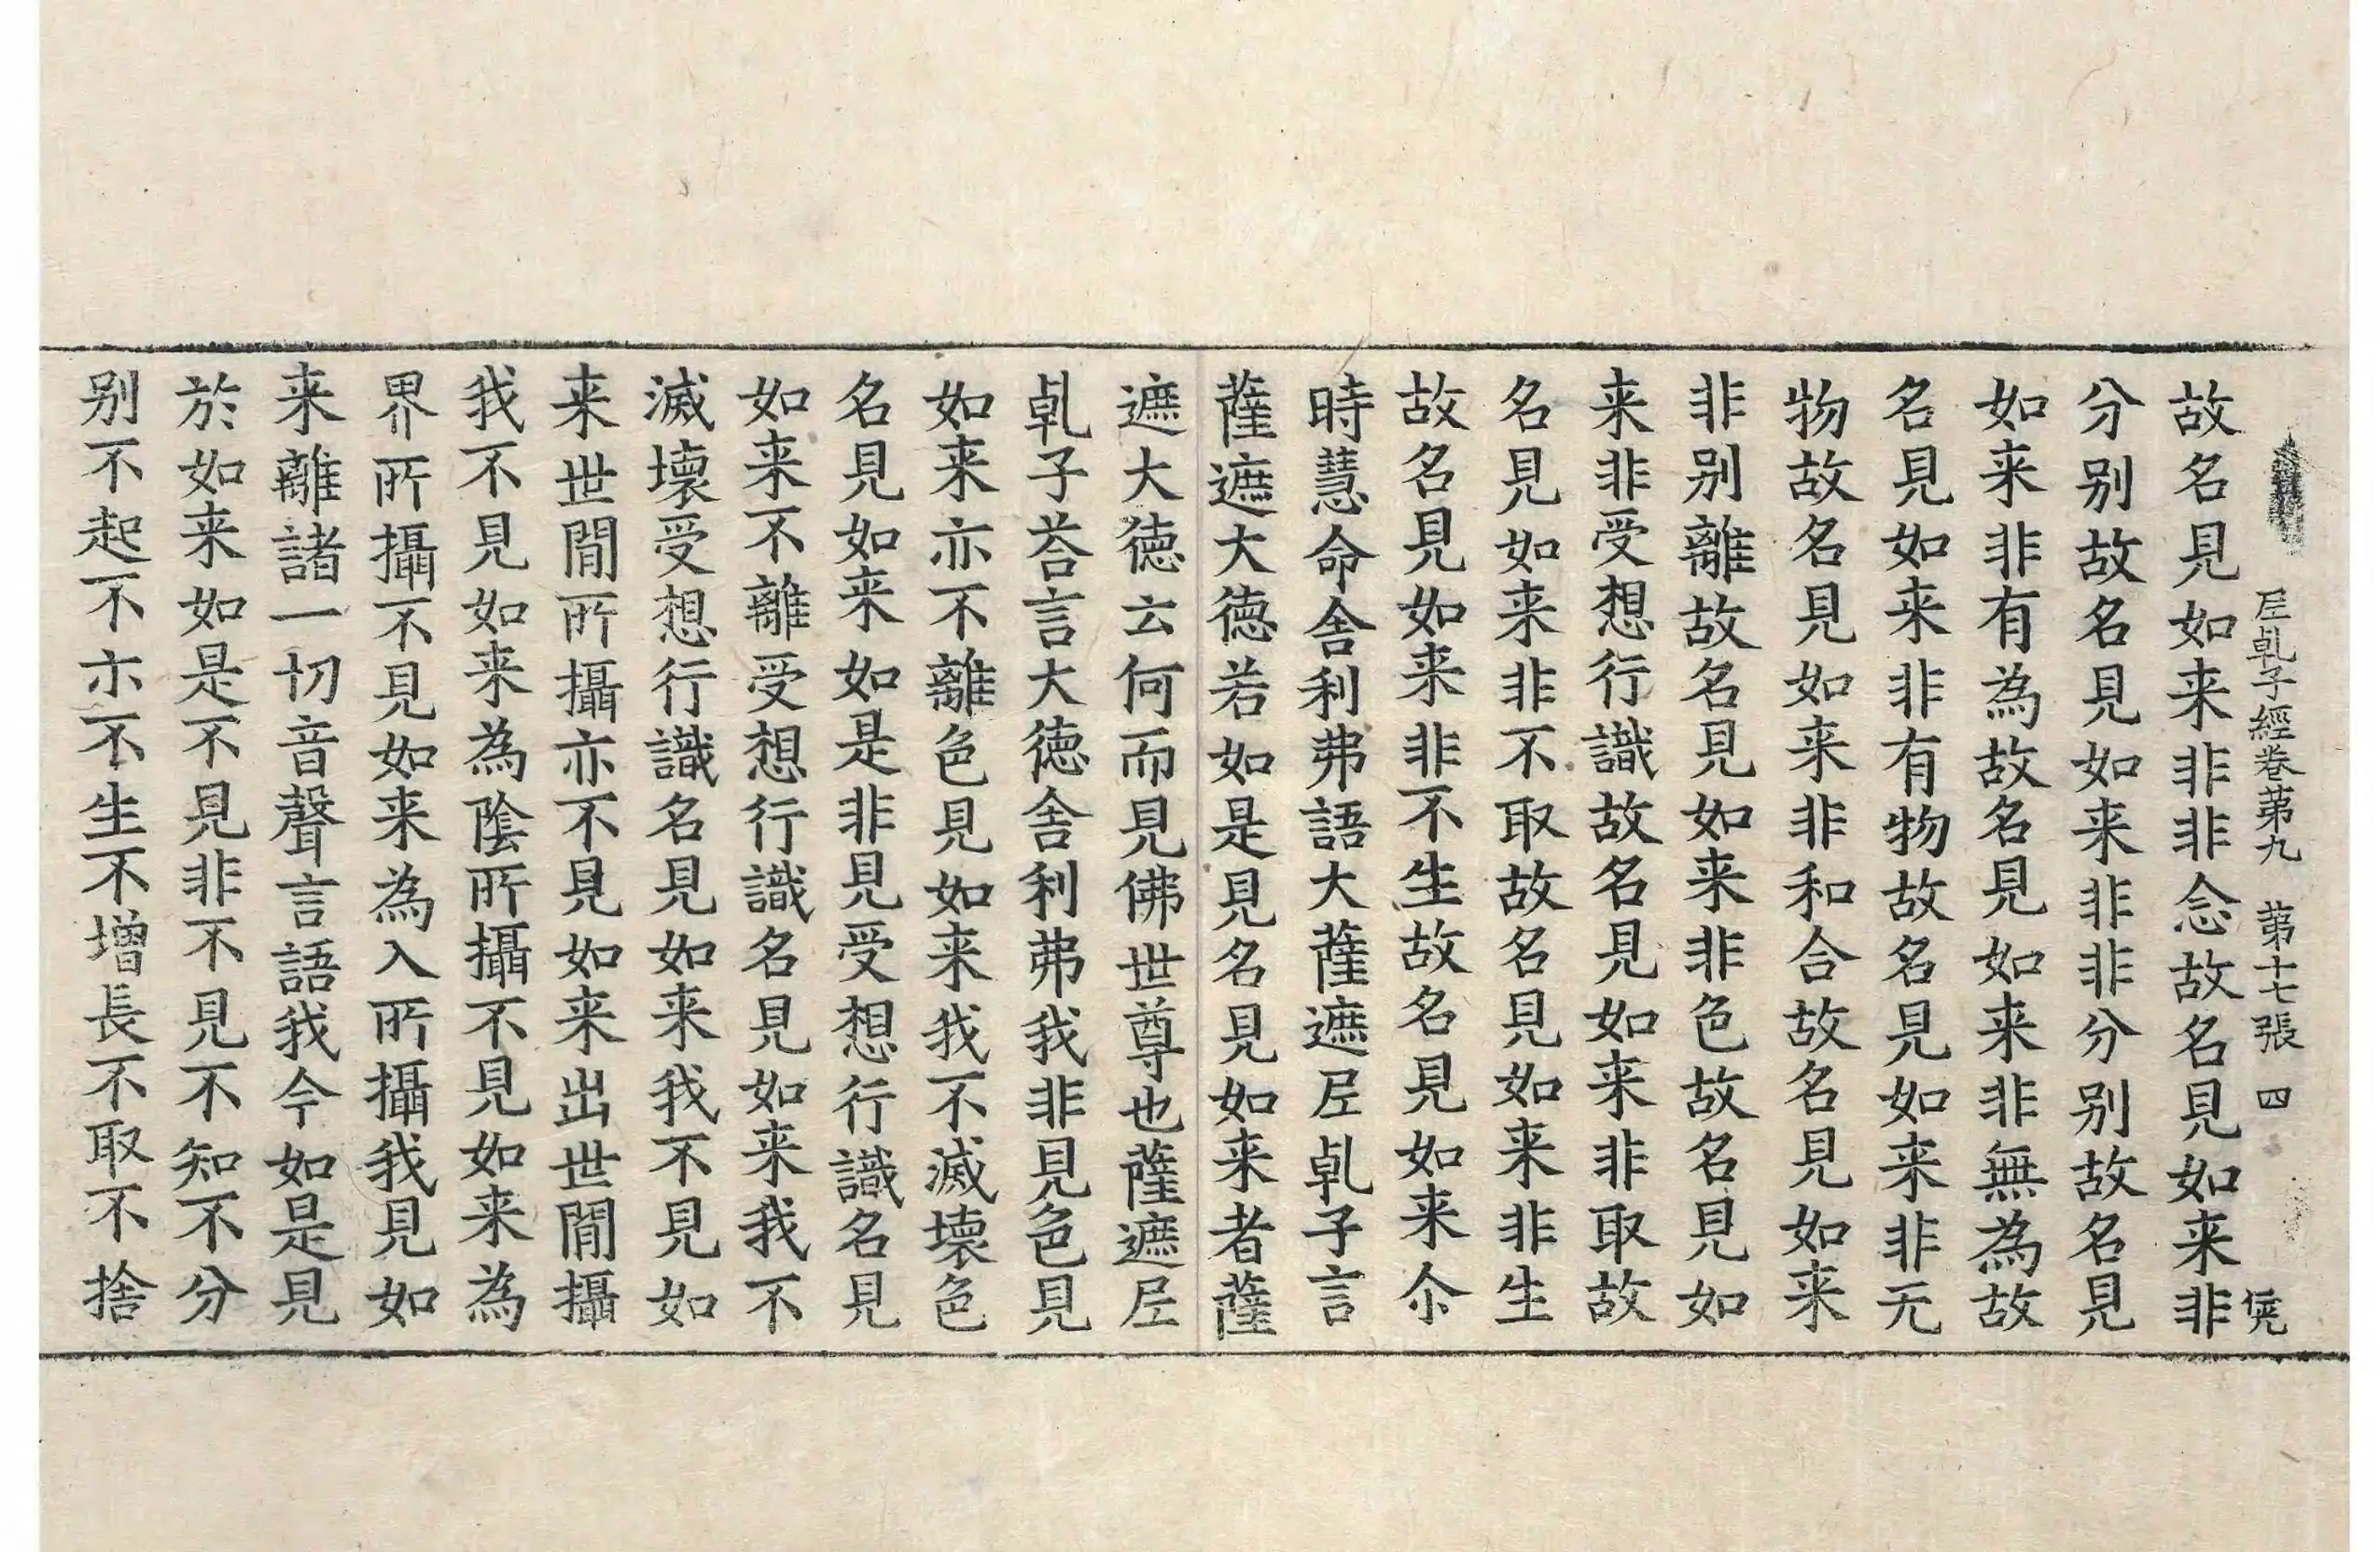 尼乹子經卷第九 第十七張 四
故名見如来非非念故名見如来非
分别故名見如来非非分别故名見
如来非有為故名見如来非無為故
名見如来非有物故名見如来非无
物故名見如来非和合故名見如来
非别離故名見如来非色故名見如
来非受想行識故名見如来非取故
名見如来非不取故名見如来非生
故名見如来非不生故名見如来尒
時慧命舍利弗語大薩遮尼乹子言
薩遮大德若如是見名見如来者薩
遮大德云何而見佛世尊也薩遮尼
乹子荅言大德舍利弗我非見色見
如来亦不離色見如来我不滅壞色
名見如来如是非見受想行識名見
如来不離受想行識名見如来我不
滅壞受想行識名見如来我不見如
来世間所攝亦不見如来出世間攝
我不見如来為陰所攝不見如来為
界所攝不見如来為入所攝我見如
来離諸一切音聲言語我今如是見
於如来如是不見非不見不知不分
别不起不亦不生不增長不取不捨